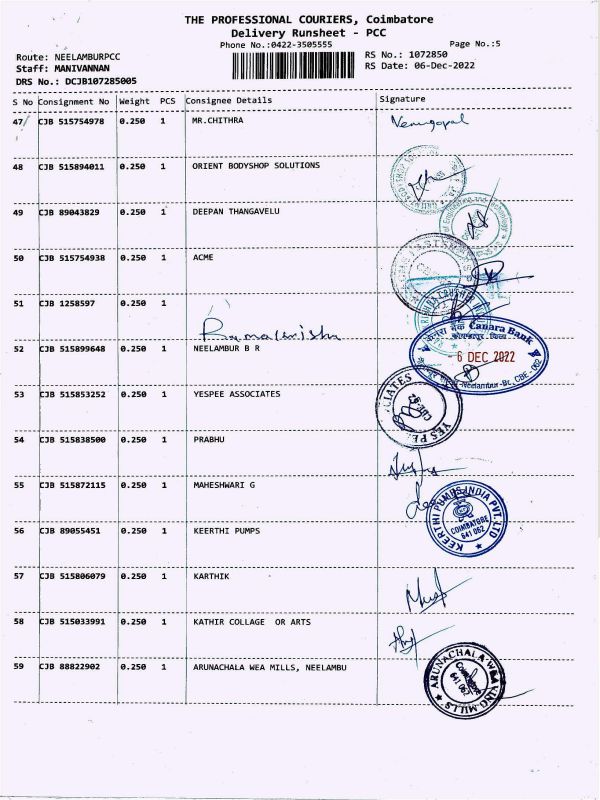 THE PROFESSIONAL COURIERS, Coimbatore
Delivery Runsheet - PCC
Phone No.:0422-3505555
Page No.:5
Route: NEELAMBURPCC
RS No.: 1072850
Staff: MANIVANNAN
RS Date: 06-Dec-2022
DRS No.: DCJB107285005
S No Consignment No Weight PCS Consignee Details Signature
47 CJB 515754978 0.250 1 MR.CHITHRA Venugopal
48 CJB 515894011 0.250 1 ORIENT BODYSHOP SOLUTIONS
49 CJB 89043829 0.250 1 DEEPAN THANGAVELU
50 CJB 515754938 0.250 1 ACME
51 CJB 1258597 0.250 1
52 CJB 515899648 0.250 1 NEELAMBUR B R
केनरा बैंक Canara Bank
- 6 DEC 2022
Neelambur-Br, CBE - 062
53 CJB 515853252 0.250 1 YESPEE ASSOCIATES
54 CJB 515838500 0.250 1 PRABHU
55 CJB 515872115 0.250 1 MAHESHWARI G
56 CJB 89055451 0.250 1 KEERTHI PUMPS
KEERTHI PUMPS INDIA PVT. LTD
COIMBATORE
641 062
57 CJB 515806079 0.250 1 KARTHIK
58 CJB 515033991 0.250 1 KATHIR COLLAGE OR ARTS
59 CJB 88822902 0.250 1 ARUNACHALA WEA MILLS, NEELAMBU
ARUNACHALA WEAVING MILLS
Coimbatore
641 062